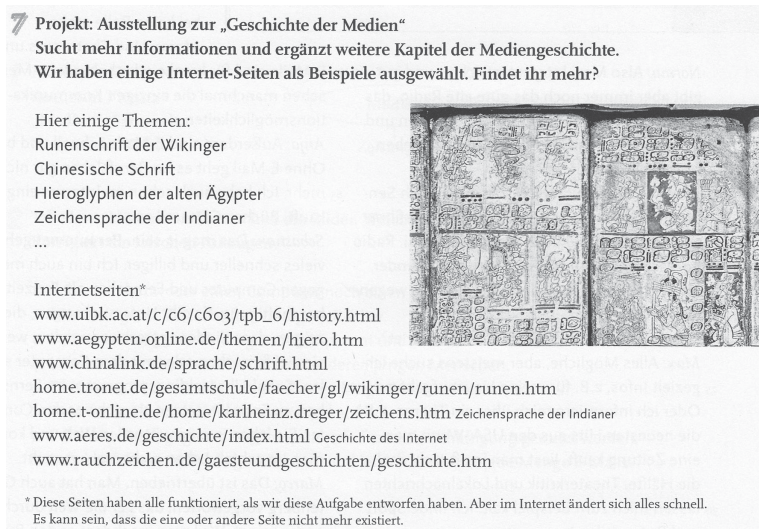 7 Projekt: Ausstellung zur „Geschichte der Medien“
Sucht mehr Informationen und ergänzt weitere Kapitel der Mediengeschichte.
Wir haben einige Internet-Seiten als Beispiele ausgewählt. Findet ihr mehr?
Hier einige Themen:
Runenschrift der Wikinger
Chinesische Schrift
Hieroglyphen der alten Ägypter
Zeichensprache der Indianer
...
Internetseiten*
www.uibk.ac.at/c/c6/c603/tpb_6/history.html
www.aegypten-online.de/themen/hiero.htm
www.chinalink.de/sprache/schrift.html
home.tronet.de/gesamtschule/faecher/gl/wikinger/runen/runen.htm
home.t-online.de/home/karlheinz.dreger/zeichens.htm Zeichensprache der Indianer
www.aeres.de/geschichte/index.html Geschichte des Internet
www.rauchzeichen.de/gaesteundgeschichten/geschichte.htm
* Diese Seiten haben alle funktioniert, als wir diese Aufgabe entworfen haben. Aber im Internet ändert sich alles schnell.
Es kann sein, dass die eine oder andere Seite nicht mehr existiert.